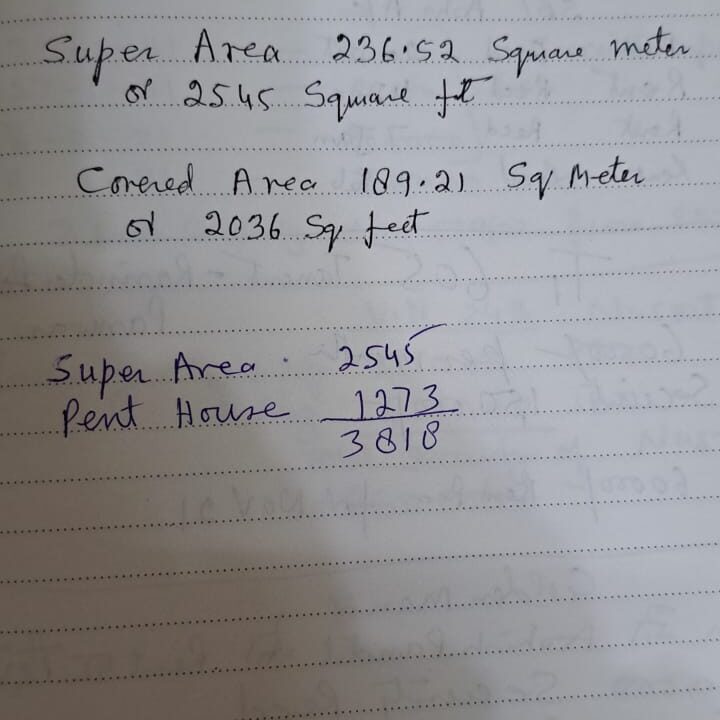 Super Area 236.52 Square meter
or 2545 Square ft
Covered Area 189.21 Sq Meter
or 2036 Sq feet
Super Area . 2545
Pent House 1273
3818